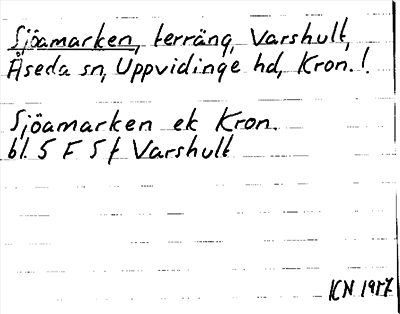 Sjöamarken, terräng, Varshult,
Åseda sn, Uppvidinge hd, Kron. l.
Sjöamarken ek Kron.
bl. 5 F 5 f Varshult
KN 1987